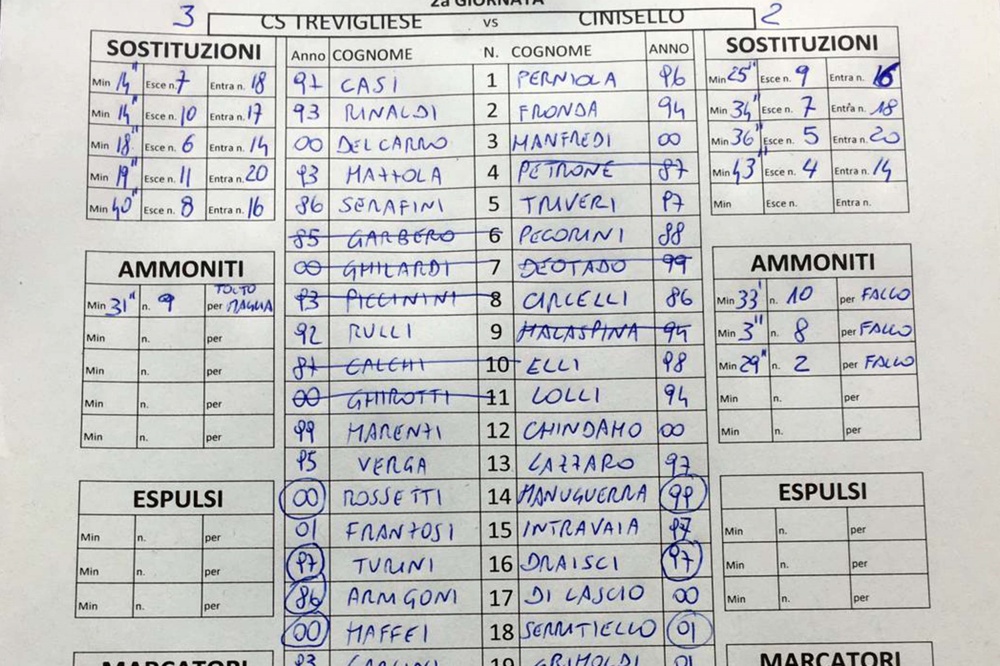 2a GIORNATA
3 CS TREVIGLIESE vs CINISELLO 2
SOSTITUZIONI
Min 14" Esce n. 7 Entra n. 18
Min 14" Esce n. 10 Entra n. 17
Min 18" Esce n. 6 Entra n. 14
Min 19" Esce n. 11 Entra n. 20
Min 40" Esce n. 8 Entra n. 16
AMMONITI
Min 31" n. 9 per TOLTO MAGLIA
Min n. per
Min n. per
Min n. per
Min n. per
ESPULSI
Min n. per
Min n. per
Min n. per
MARCATORI
Anno COGNOME N. COGNOME ANNO
97 CASI 1 PERNIOLA 96
93 RINALDI 2 FRONDA 94
00 DEL CARRO 3 MANFREDI 00
93 MAZZOLA 4 PETRONE 87
86 SERAFINI 5 TRIVERI 97
85 GARBERO 6 PECORINI 88
00 GHILARDI 7 DEOTADO 99
93 PICCININI 8 CIRCELLI 86
92 RULLI 9 MALASPINA 94
87 CALCHI 10 ELLI 98
00 GHIROTTI 11 LOLLI 94
99 MARENZI 12 CHINDAMO 00
95 VERGA 13 LAZZARO 97
00 ROSSETTI 14 MANUGUERRA 99
01 FRANZOSI 15 INTRAVAIA 97
97 TURINI 16 DRAISCI 97
86 ARMIGONI 17 DI LASCIO 00
00 MAFFEI 18 SERRITIELLO 01
93 19 GRIMOLDI 01
SOSTITUZIONI
Min 25" Esce n. 9 Entra n. 16
Min 34" Esce n. 7 Entra n. 18
Min 36" Esce n. 5 Entra n. 20
Min 43" Esce n. 4 Entra n. 14
Min Esce n. Entra n.
AMMONITI
Min 33' n. 10 per FALLO
Min 3" n. 8 per FALLO
Min 29" n. 2 per FALLO
Min n. per
Min n. per
ESPULSI
Min n. per
Min n. per
Min n. per
MARCATORI